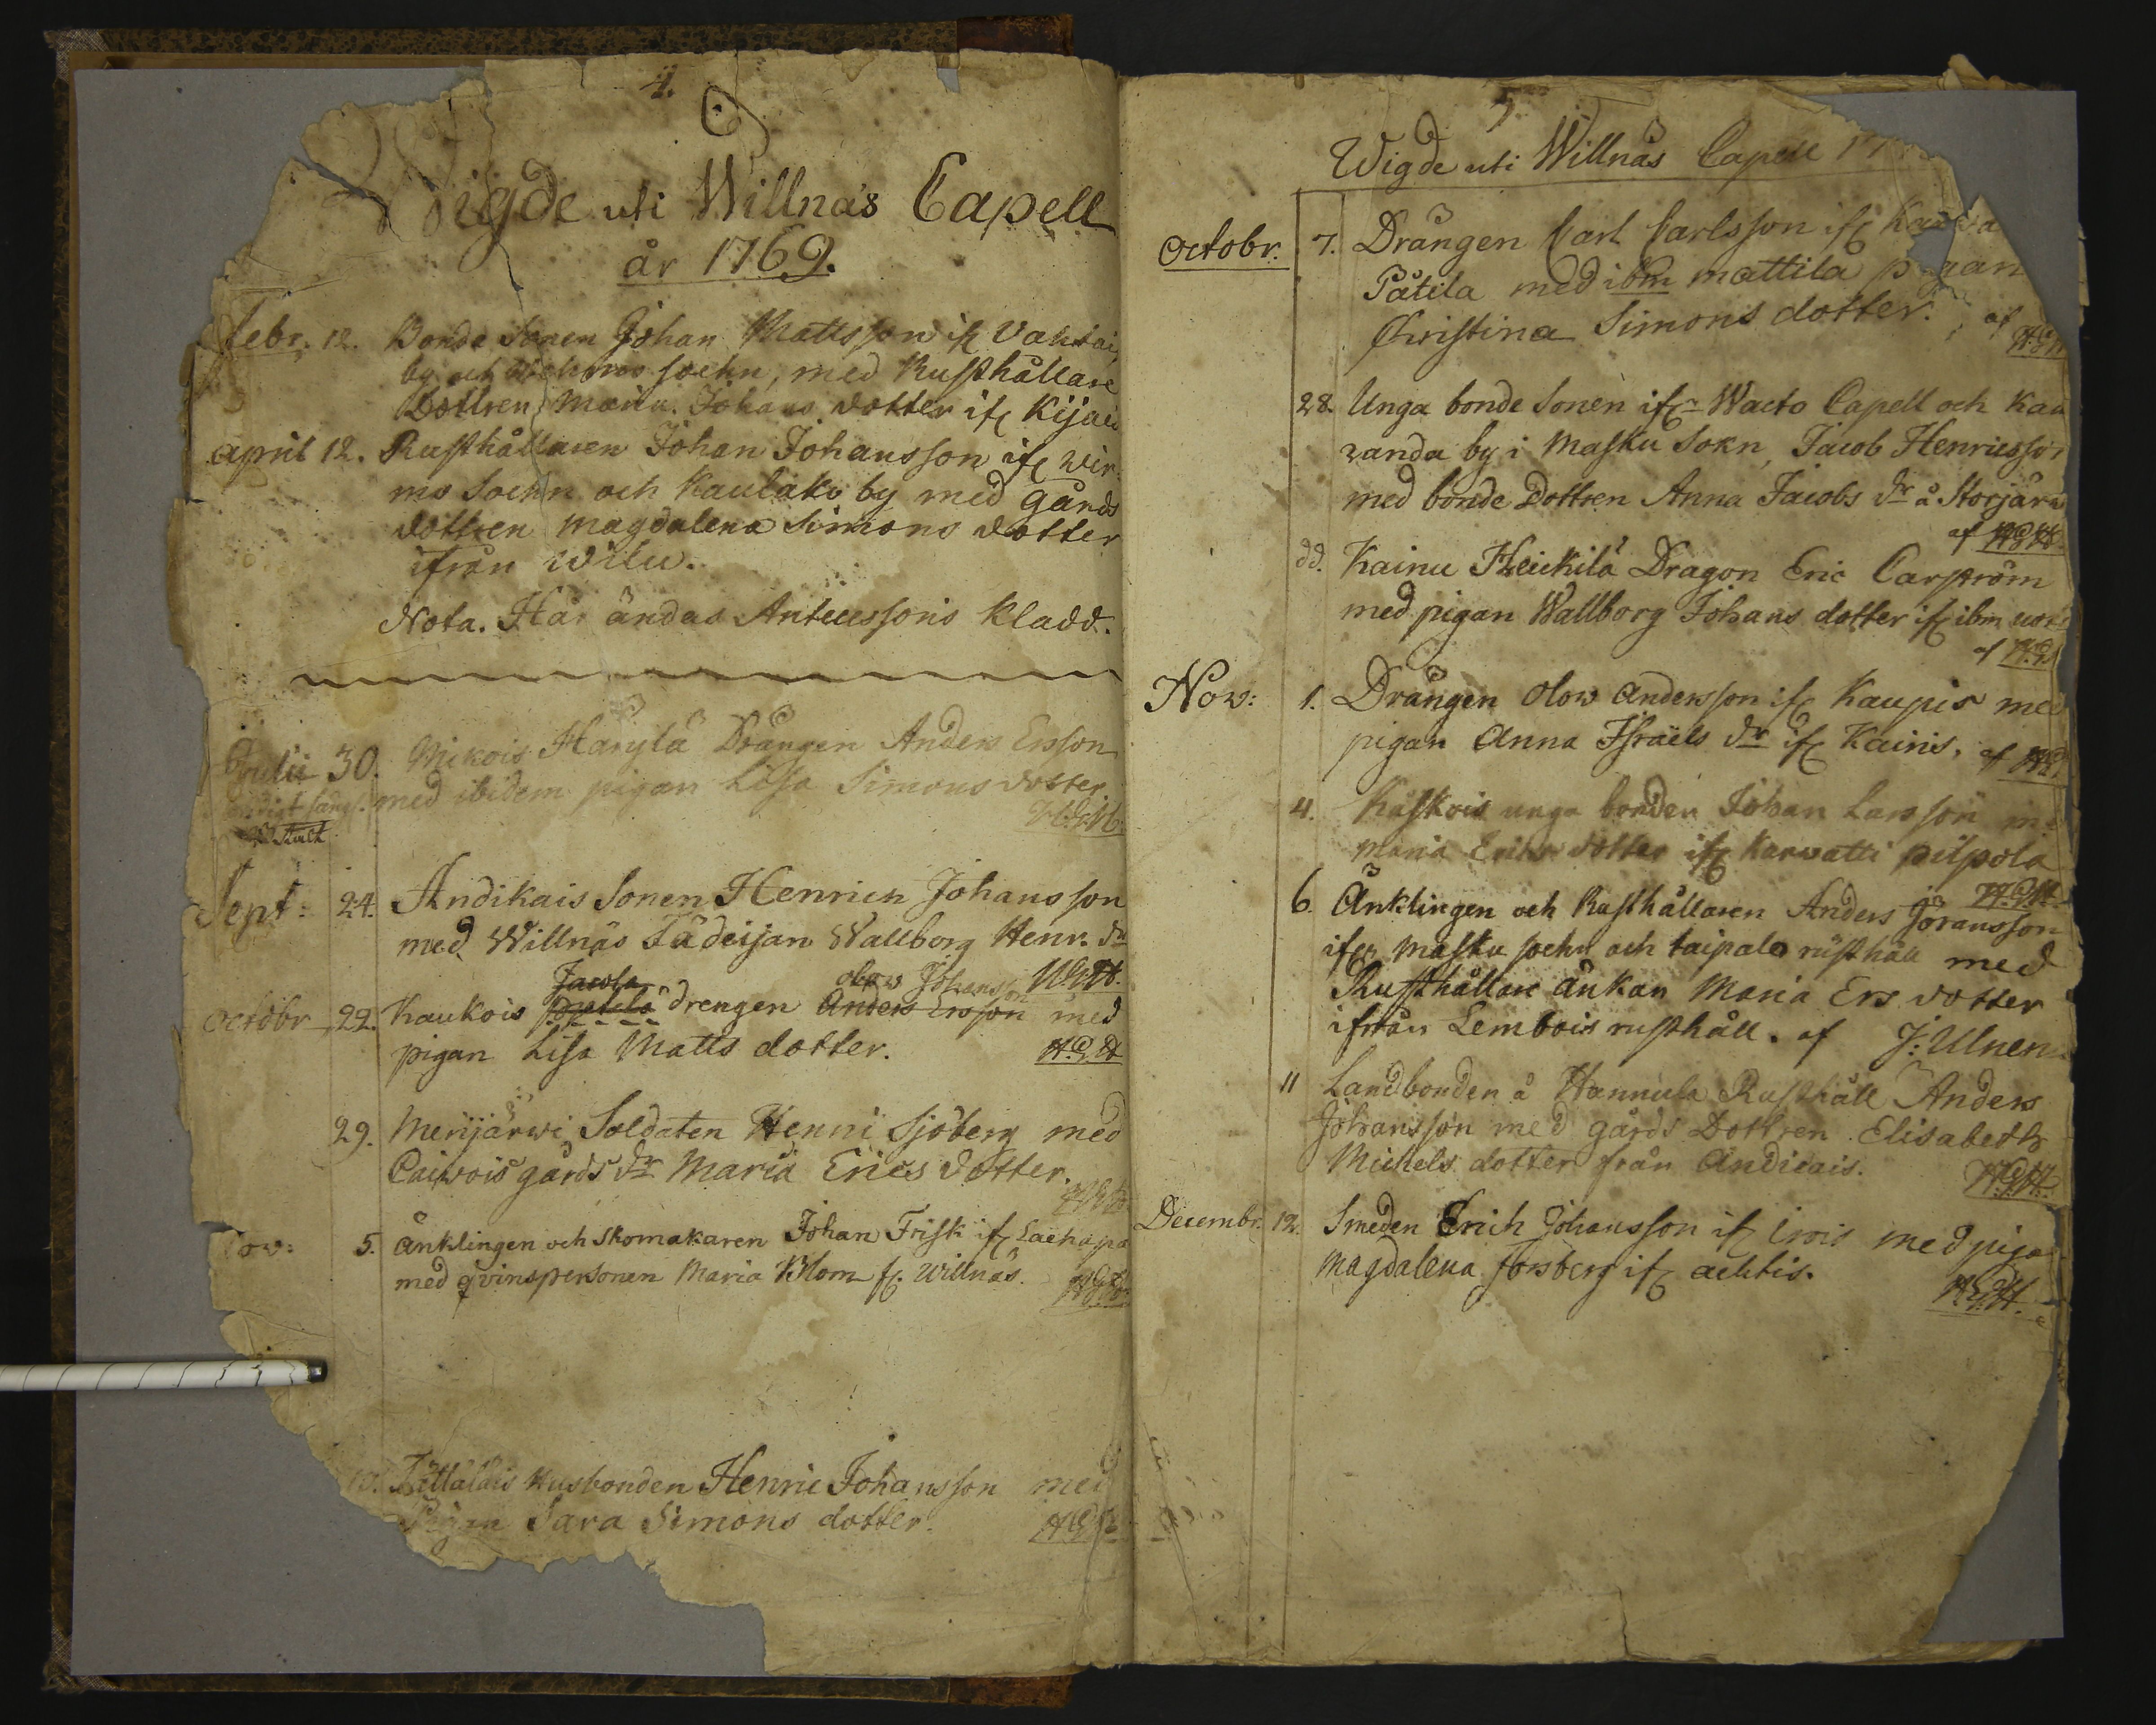 4.
Wigde uti Willnäs Capell
år 1769.
Febr. 12. Bonde Sonen Johan Mattsson ifr
by och sochn, med Rusthållare
Dottren Maria Johans dotter ifr Kijais
April 12. Rusthållaren Johan Johansson ifr Wir-
mo Sochn och Kaulako by med Gårds
dottren Magdalena Simons dotter
ifrån Wilu.
Nota. Här ändas Antecessoris Kladd.
Julii 30. Nickois Härylä Drängen Anders Ersson
med ibidem pigan Lisa Simons dotter.
Sept: 24. Andikais Sonen Henrich Johansson
med Willnäs Henr. dr
Jacola olow Johansson
Octobr 22. Kaukois drengen Anders Ersson med
pigan Lisa Matts dotter.
29. Merijärwi Soldaten Henri Sjöberg med
Caiwois gårds dr Maria Erics dotter.
Nov: 5. Änklingen och Skomakaren Johan Frisk ifr
med qvinspersonen Maria Blom fr. Willnäs.
Husbonden Henric Johansson med
Pigan Sara Simons dotter.
5.
Wigde uti Willnäs Capell 17
Octobr. 7. Drängen Carl Carlsson ifr
Påtila med ibm Mattila pigan
Christina Simons dotter. af
28. Unga bonde Sonen ifrn Wacto Capell och Kau
randa by i Masku Sokn, Jacob Henricsson
med bonde Dottren Anna Jacobs dr å Storjärw
af
dd. Kainu Heickilä Dragon Eric Carström
med pigan Wallborg Johans dotter ifr ibm
af
Nov: 1. Drängen Olow Andersson ifr Kaupis med
pigan Anna Israels dr ifr Kainis, af
4. Kåskois unga bonden Johan Larsson
Maria Erics dotter ifr Karvatti pilpola
6. Änklingen och Rusthållaren Anders Göransson
ifrn Masku sochn och taipale rusthåll med
Rusthållare änkan Maria Ers dotter
ifrån Lembois rusthåll. af J: Ulnen
11 Landbonden å Hannula Rusthåll Anders
Johansson med gårds Dottren Elisabeth
Michels dotter från Andicais.
Decembr. 12. Smeden Erich Johansson ifr med piga
Magdalena Forsberg ifr achtis.